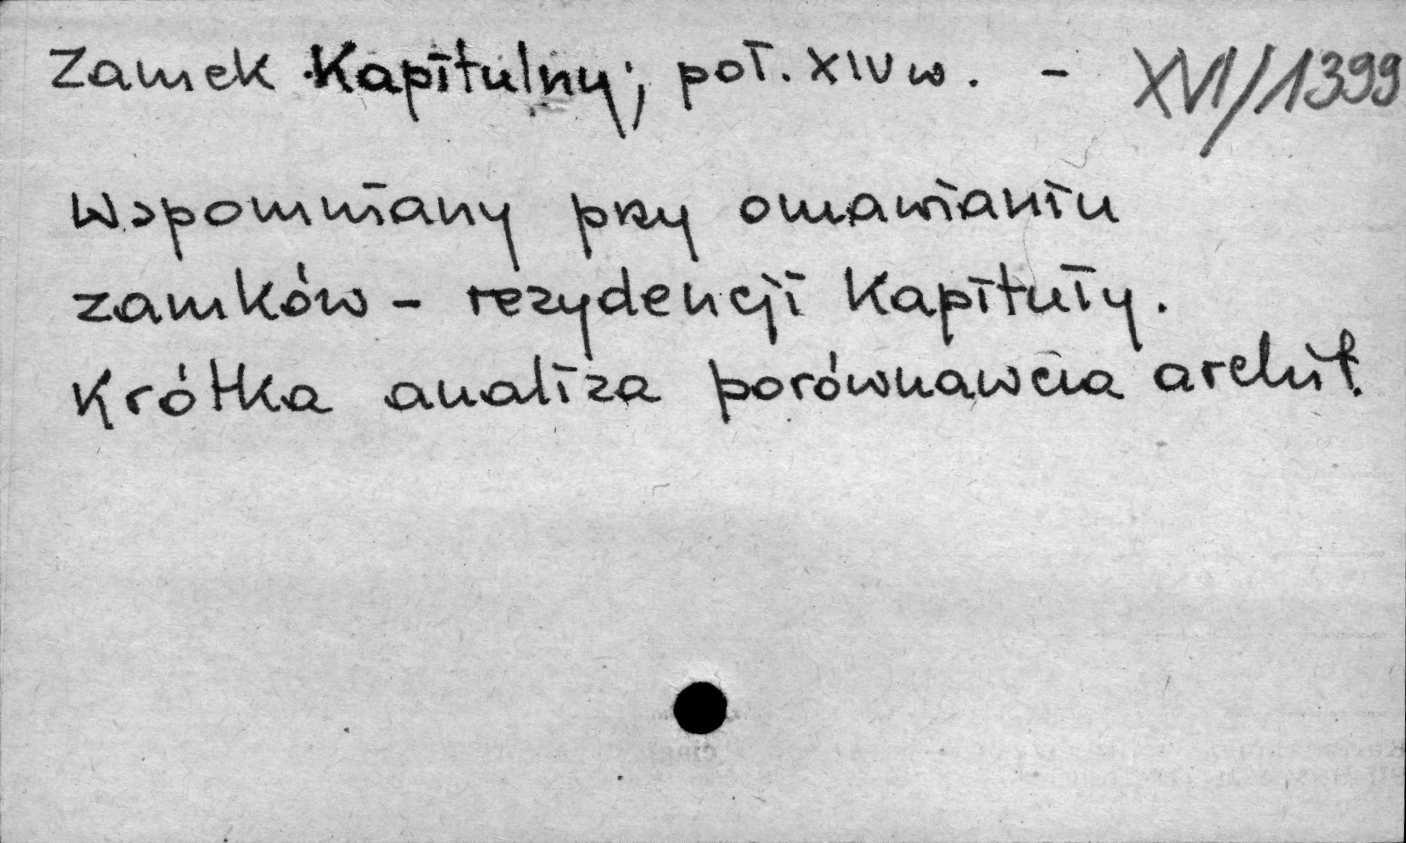 Zamek Kapitulny; poł. XIV w. - XVI/1399
Wspomniany przy omawianiu
zamków - rezydencji Kapituły.
Krótka analiza porównawcza archit.